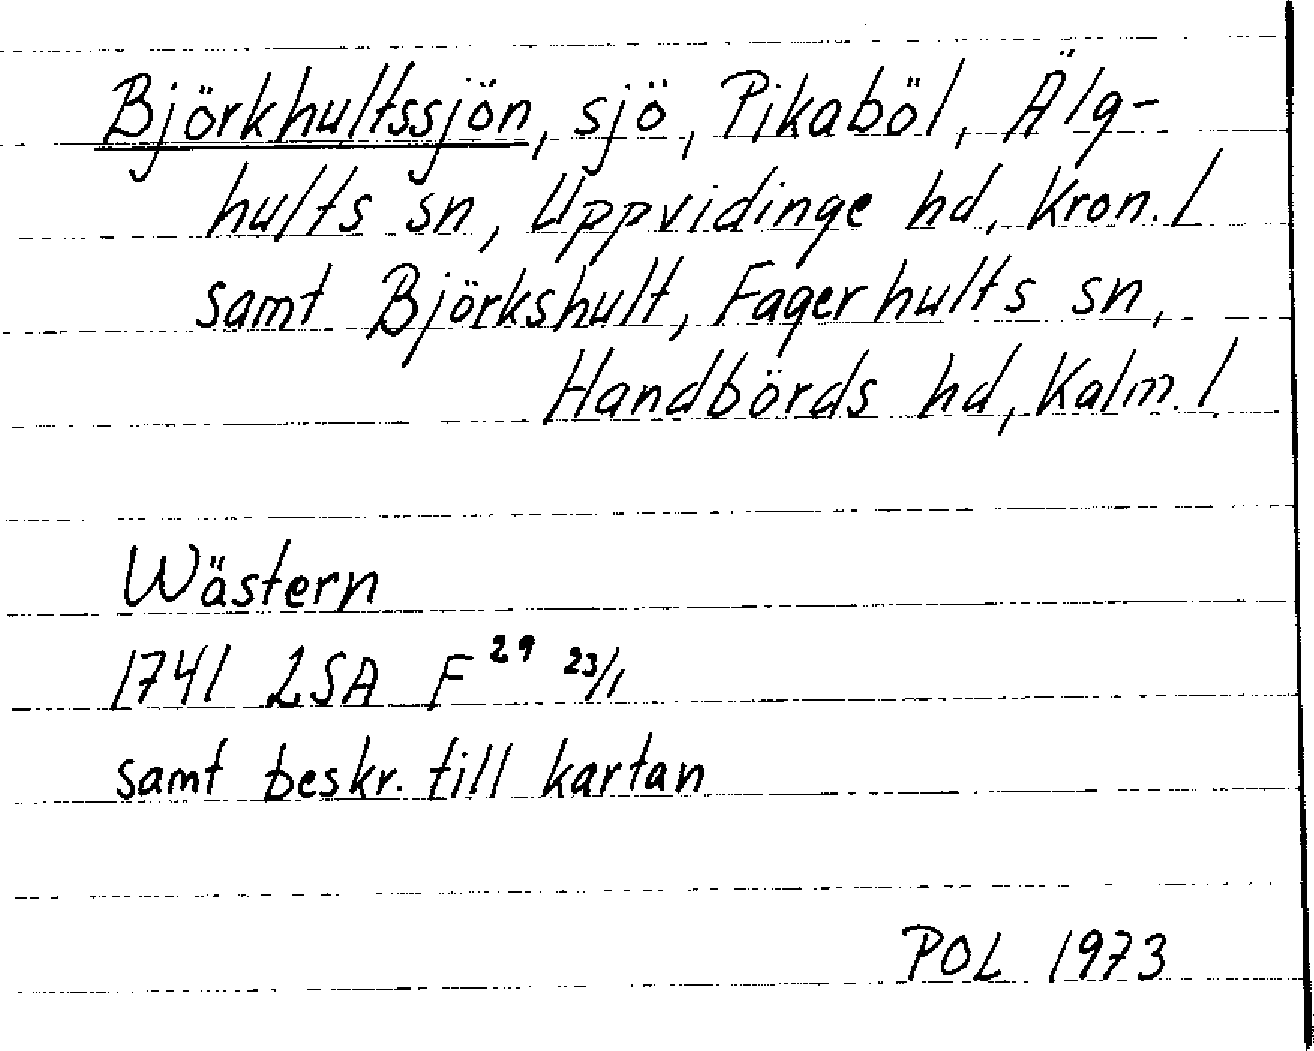 Björkhultssjön, sjö, Pikaböl, Älg-
hults sn, Uppvidinge hd, Kron. l
samt Björkshult, Fagerhults sn,
Handbörds hd, Kalm. l
Wästern
1741 LSA F 29 23/1
samt beskr. till kartan
POL 1973